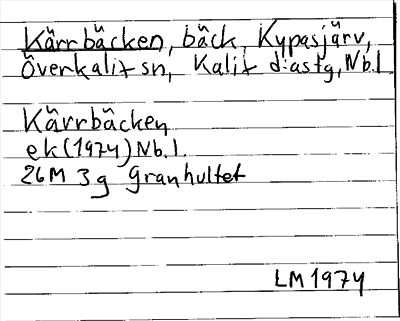 Kärrbäcken, bäck, Kypasjärv,
Överkalix sn, Kalix d:astg, Nb.l
Kärrbäcken
ek(1974)Nb.l.
26M 3g Granhultet
LM1974